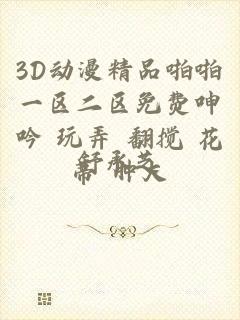 3D动漫精品啪啪
一区二区免费呻
吟 玩弄 翻搅 花
蒂 肿大
舒承芝